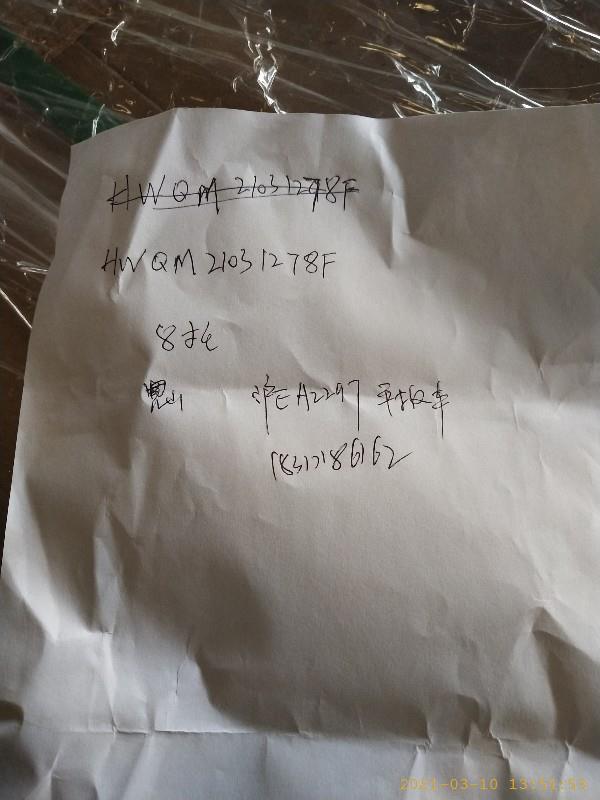 HWQM21031278F
HWQM21031278F
8托
沪EA2297 平板车
18317186162
2021-03-10 13:51:53